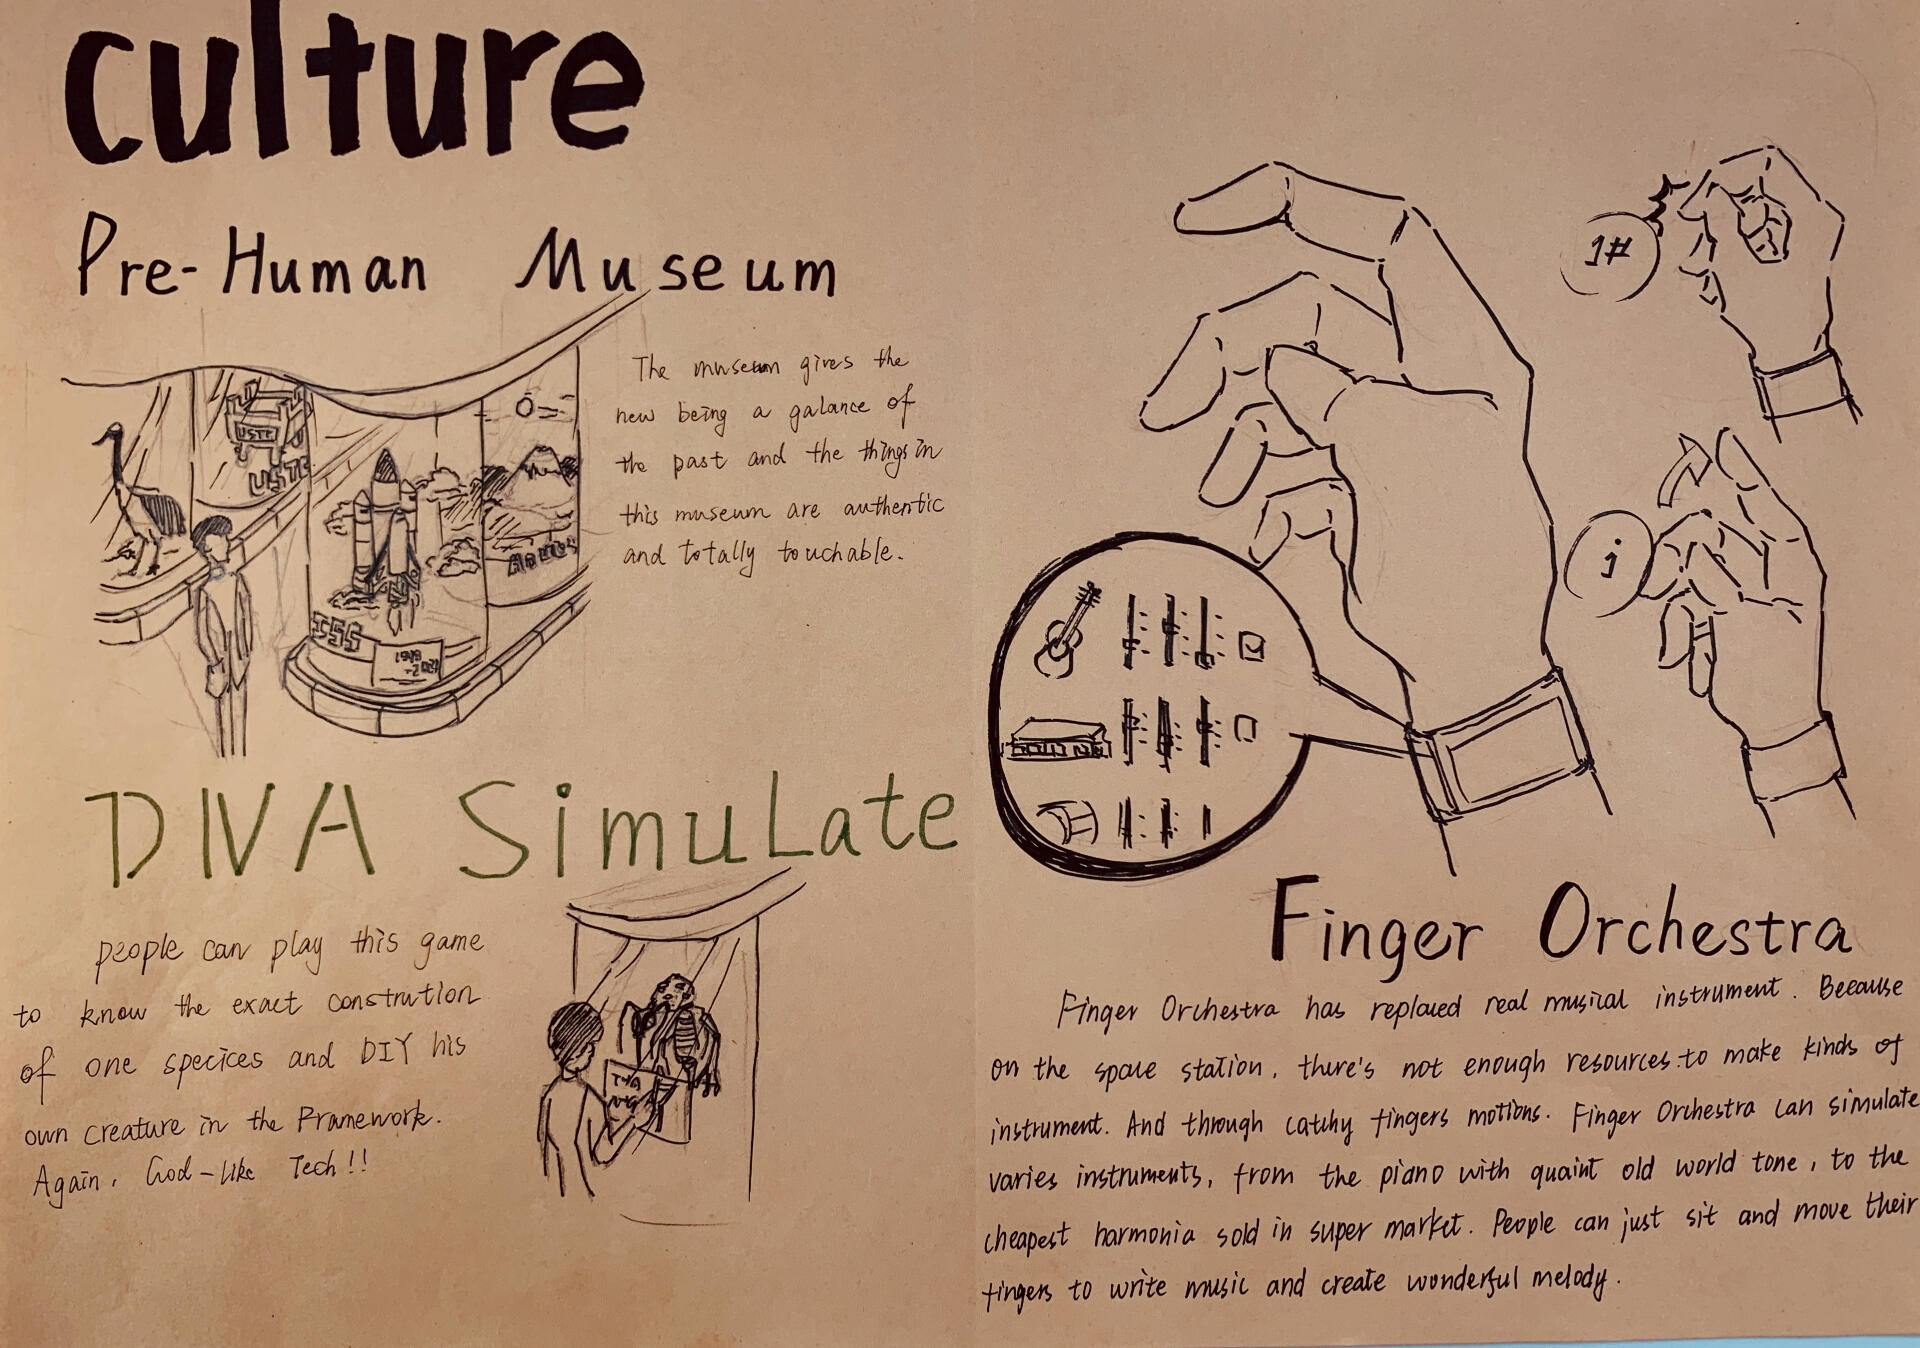 culture
Pre-Human Museum
The museum gives the
new being a galance of
the past and the things in
this museum are authentic
and totally touchable.
USTC
USTC
ISS
DIVA Simulate
people can play this game
to know the exact constrution
of one specices and DIY his
own creature in the Framework.
Again, God-like Tech!!
1#
j
Finger Orchestra
Finger Orchestra has replaced real musical instrument. Because
on the space station, there's not enough resources to make kinds of
instrument. And through catchy fingers motions. Finger Orchestra can simulate
varies instruments, from the piano with quaint old world tone, to the
cheapest harmonia sold in super market. People can just sit and move their
fingers to write music and create wonderful melody.